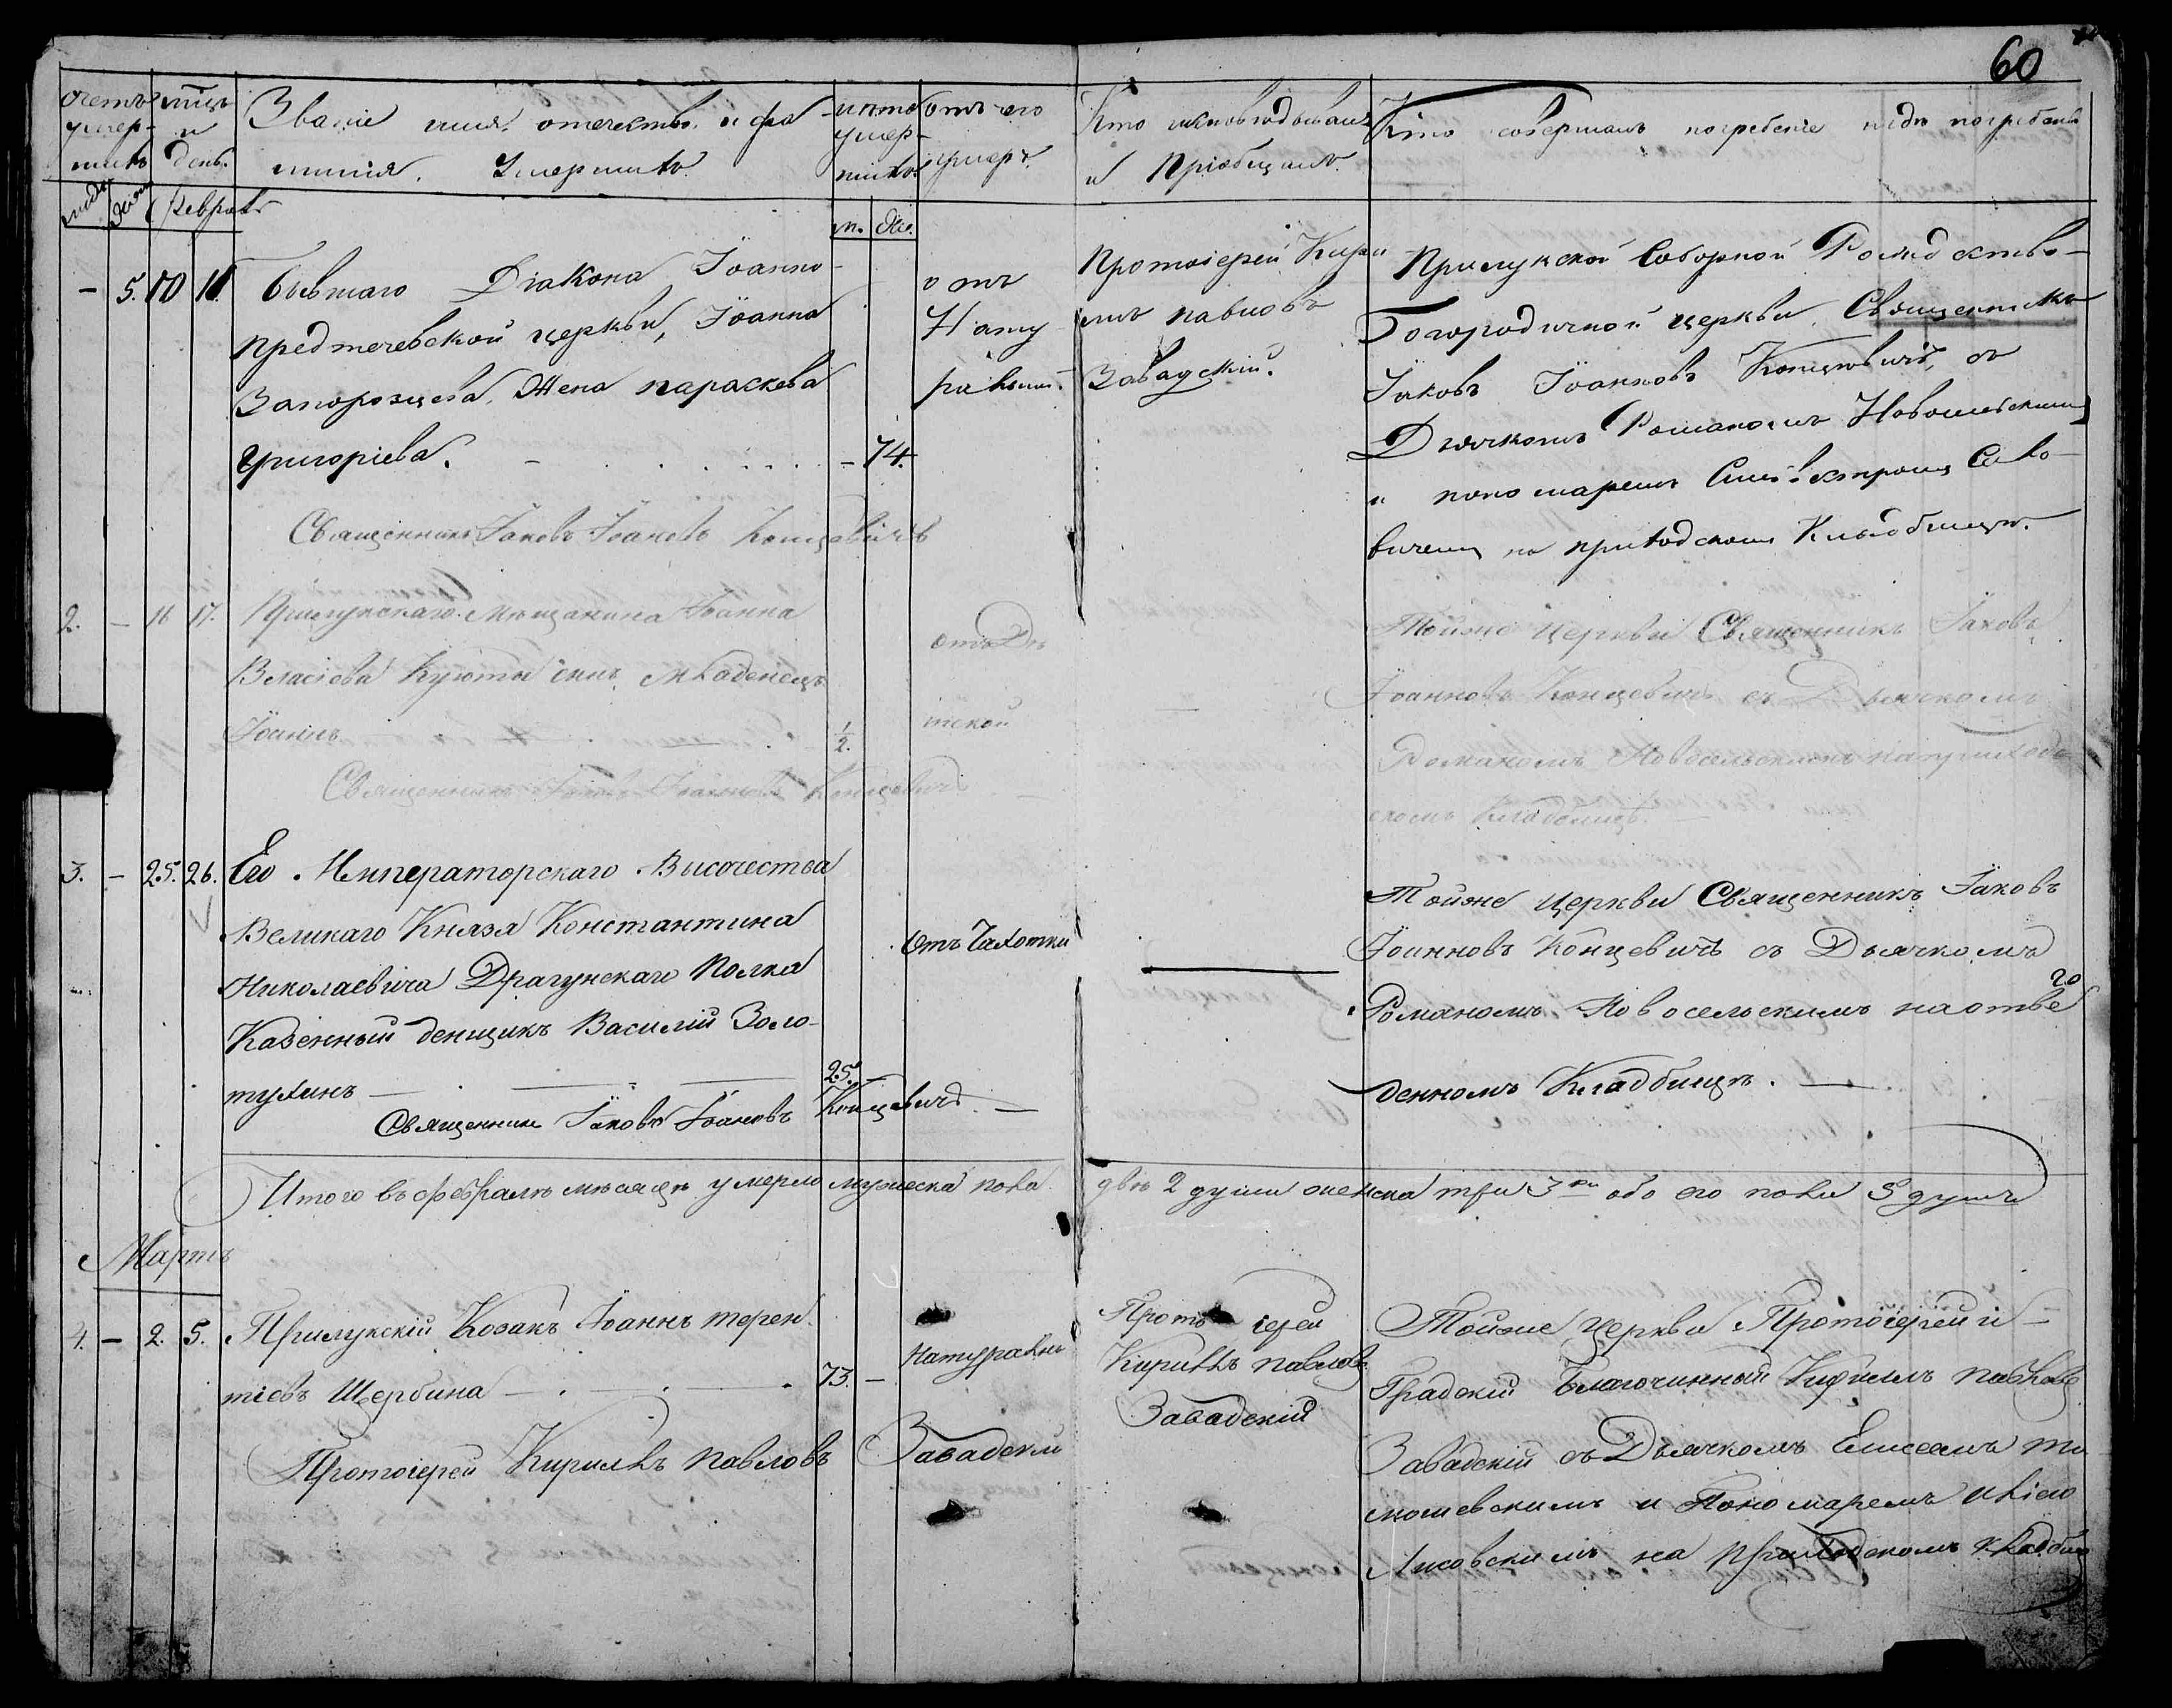 60
счетъ умершихъ
мцъ и день.
Званіе имя, отечество, и фа
милія. Умершихъ
лѣта умершихъ
отъ чего умеръ.
Кто исповѣдывалъ
и Пріобщалъ.
Кто совершалъ погребеніе и гдѣ погребены
Февраль
м. Же.
– 5. 10 11.
Бывшаго Діакона Іоанно-
предтечевской церкви, Іоанна
Запорозцева, Жена параскева
григоріева. – 74.
отъ
Нату
ральной.
Протоіерей Кири
лъ павловъ
Завадскій.
Прилукской Соборной Рождество-
Богородичной церкви Священникъ
Іаковъ Іоанновъ Концевичъ, съ
Дьячкомъ Романомъ Новосельскимъ
и пономаремъ Силвестромъ Саво-
вичемъ на приходскомъ Кладбищѣ.
Священникъ Іаковъ Іоановъ Концевичъ
2. – 16 17.
Прилукскаго Мѣщанина Іоанна
Власіева Куюты сынъ младенецъ
Іоаннъ ½.
отъ Дѣ
тской
Тойже церкви Священникъ Іаковъ
Іоанновъ Концевичъ съ Дьячкомъ
Романомъ Новосельскимъ на приход
скомъ Кладбищѣ.
Священникъ Іаковъ Іоанновъ Концевичъ
3. – 25. 26.
Его Императорскаго Высочества
Великаго Князя Константина
Николаевича Драгунскаго Полка
Казенный денщикъ Василій Золо-
тухинъ – 25. –
Отъ Чахотки
Тойже церкви Священникъ Іаковъ
Іоанновъ Концевичъ съ Дьячкомъ
Романомъ Новосельскимъ на отве
денномъ Кладбищѣ.
Священник Іаковъ Іоановъ Концевичъ
Итого въ февралѣ мѣсяцѣ умерло мужеска пола двѣ 2 души женска три 3 обоего пола 5 душъ
Мартъ
4. – 2. 5.
Прилукскій Козакъ Іоаннъ терен
тіевъ Щербина 73. –
Натуральн
Протоіерей
Кириллъ павловъ
Завадскій
Тойже Церкви Протоіерей и
Градскій Благочинный Кириллъ павловъ
Завадскій съ Дьячкомъ Елисеемъ ти
мошевскимъ и Пономаремъ
Лисовскимъ на приходскомъ кладбищ
Протоіерей Кириллъ Павловъ Завадскій